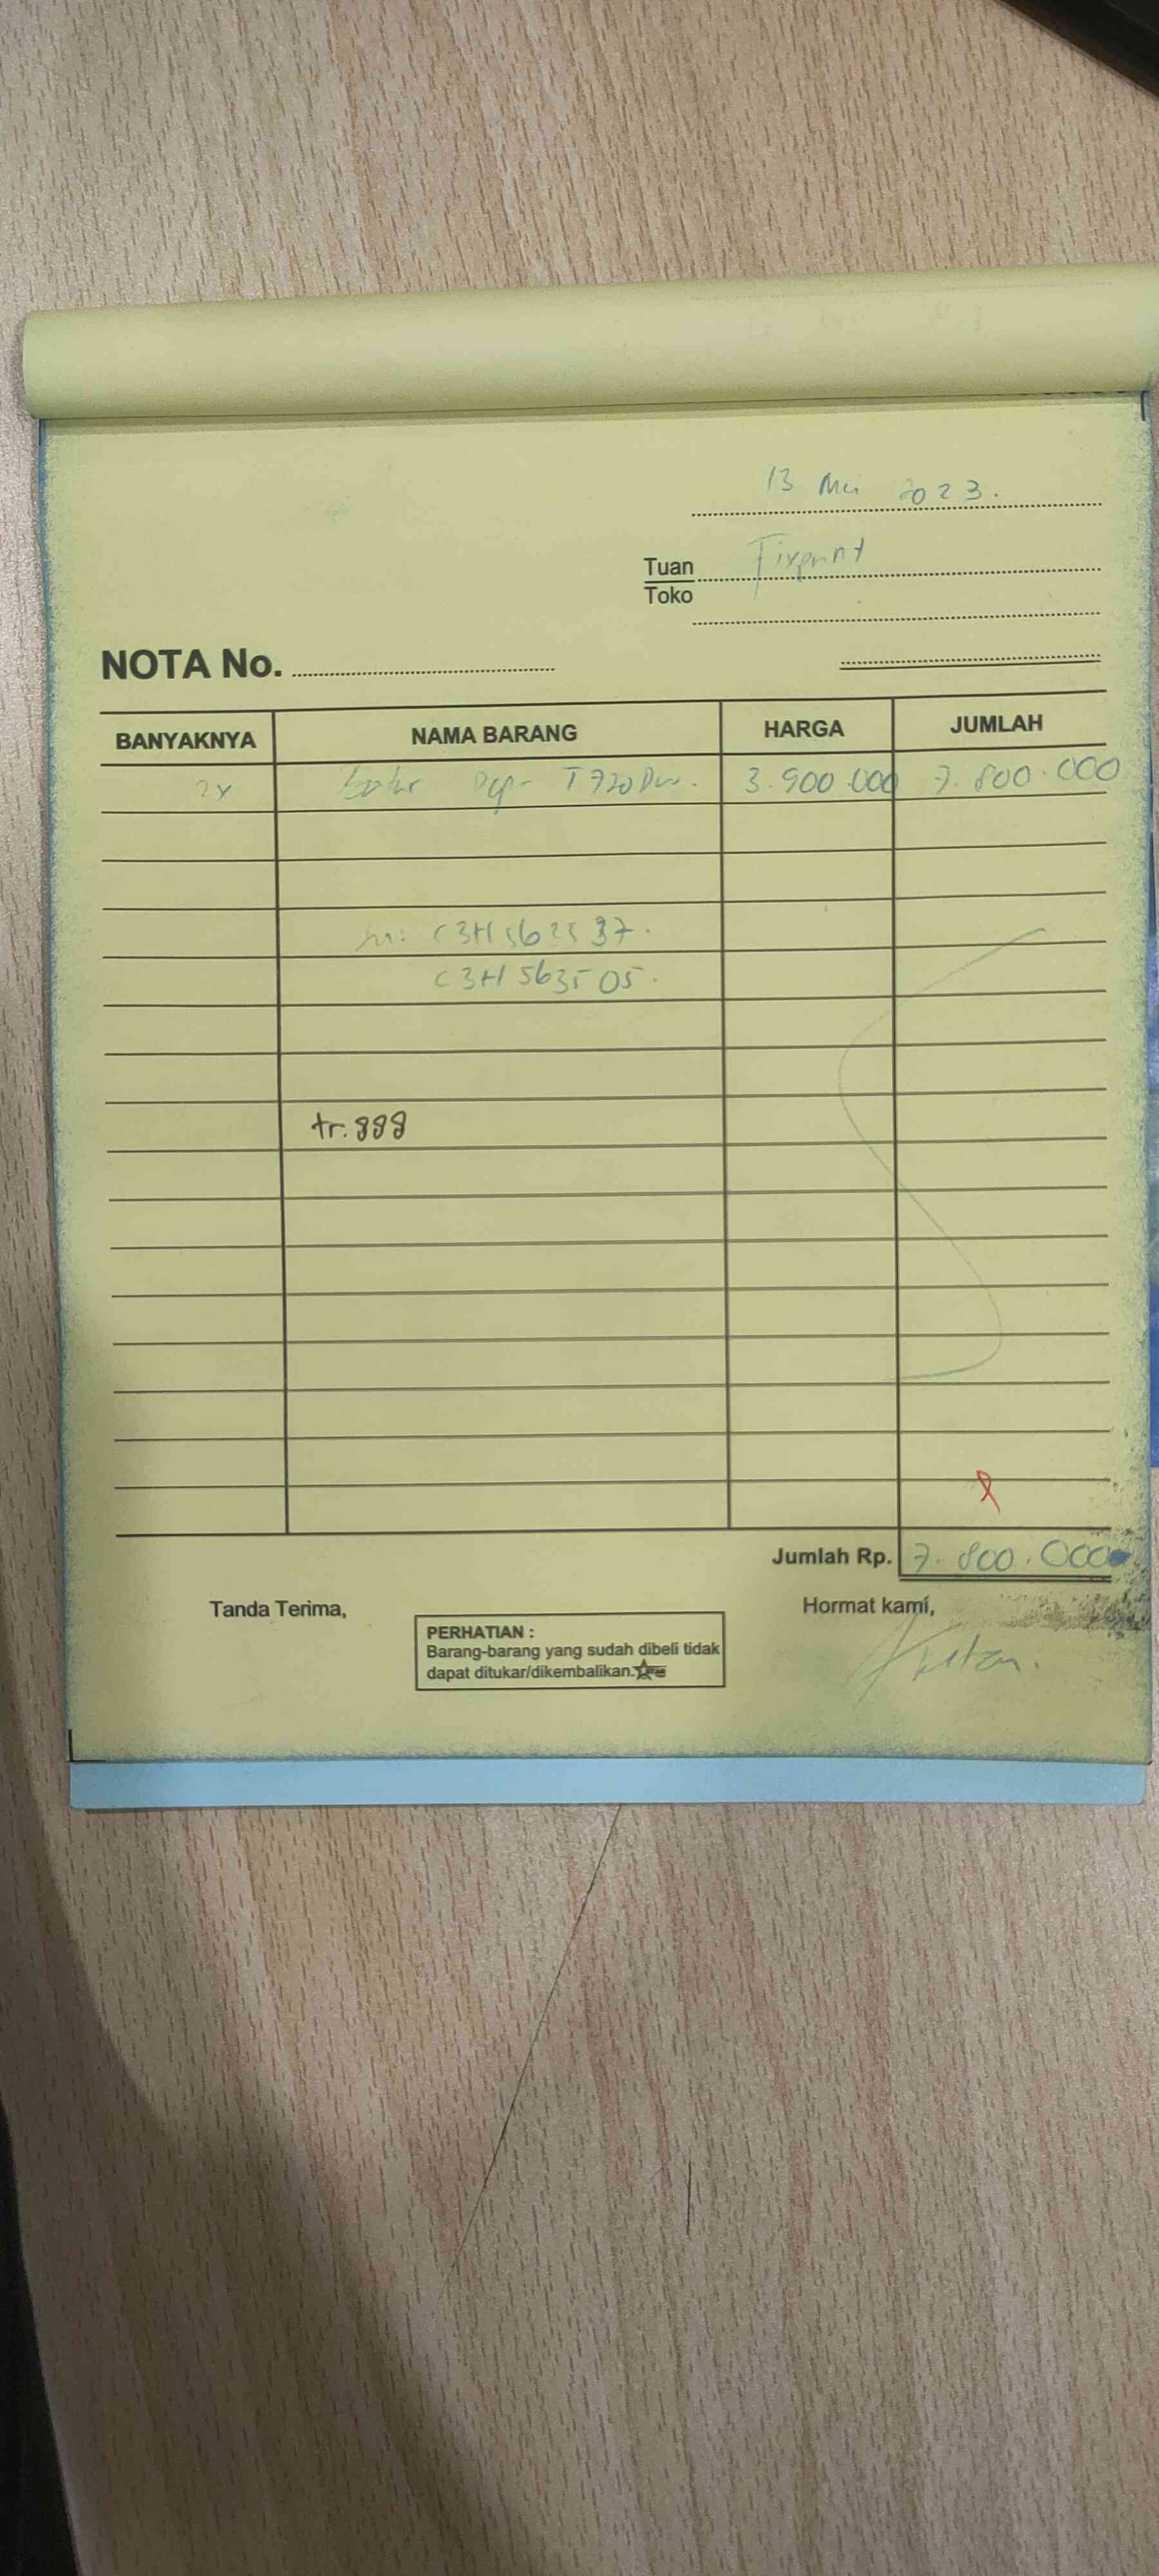 13 Mei 2023.
Tuan Fixprint
Toko
NOTA No.
BANYAKNYA NAMA BARANG HARGA JUMLAH
2x Dcp- T720Dw. 3.900.000 7.800.000
sn: C3H562537.
C3H563505.
tr.999
Jumlah Rp. 7.800.000
Tanda Terima, Hormat kami,
PERHATIAN :
Barang-barang yang sudah dibeli tidak
dapat ditukar/dikembalikan.